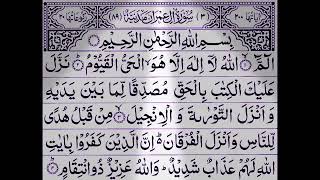 اٰیَاتُهَا ۲۰۰ (۳) سُوْرَةُ اٰلِ عِمْرٰنَ مَدَنِيَّةٌ (۸۹) رُكُوْعَاتُهَا ۲۰
بِسْمِ اللّٰهِ الرَّحْمٰنِ الرَّحِيْمِ
الٓمّٓ ۙ﴿۱﴾ اللّٰهُ لَاۤ اِلٰهَ اِلَّا هُوَ الْحَیُّ الْقَیُّوْمُ ﴿۲﴾ نَزَّلَ
عَلَیْكَ الْكِتٰبَ بِالْحَقِّ مُصَدِّقًا لِّمَا بَیْنَ یَدَیْهِ
وَ اَنْزَلَ التَّوْرٰىةَ وَ الْاِنْجِیْلَ ﴿۳﴾ مِنْ قَبْلُ هُدًی
لِّلنَّاسِ وَ اَنْزَلَ الْفُرْقَانَ ؕ اِنَّ الَّذِیْنَ كَفَرُوْا بِاٰیٰتِ
اللّٰهِ لَهُمْ عَذَابٌ شَدِیْدٌ ؕ وَ اللّٰهُ عَزِیْزٌ ذُو انْتِقَامٍ ﴿۴﴾